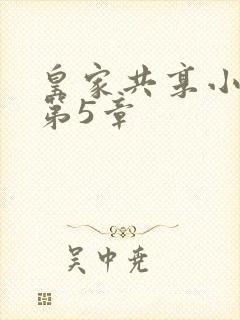 皇家共享小
第5章
吴中尧